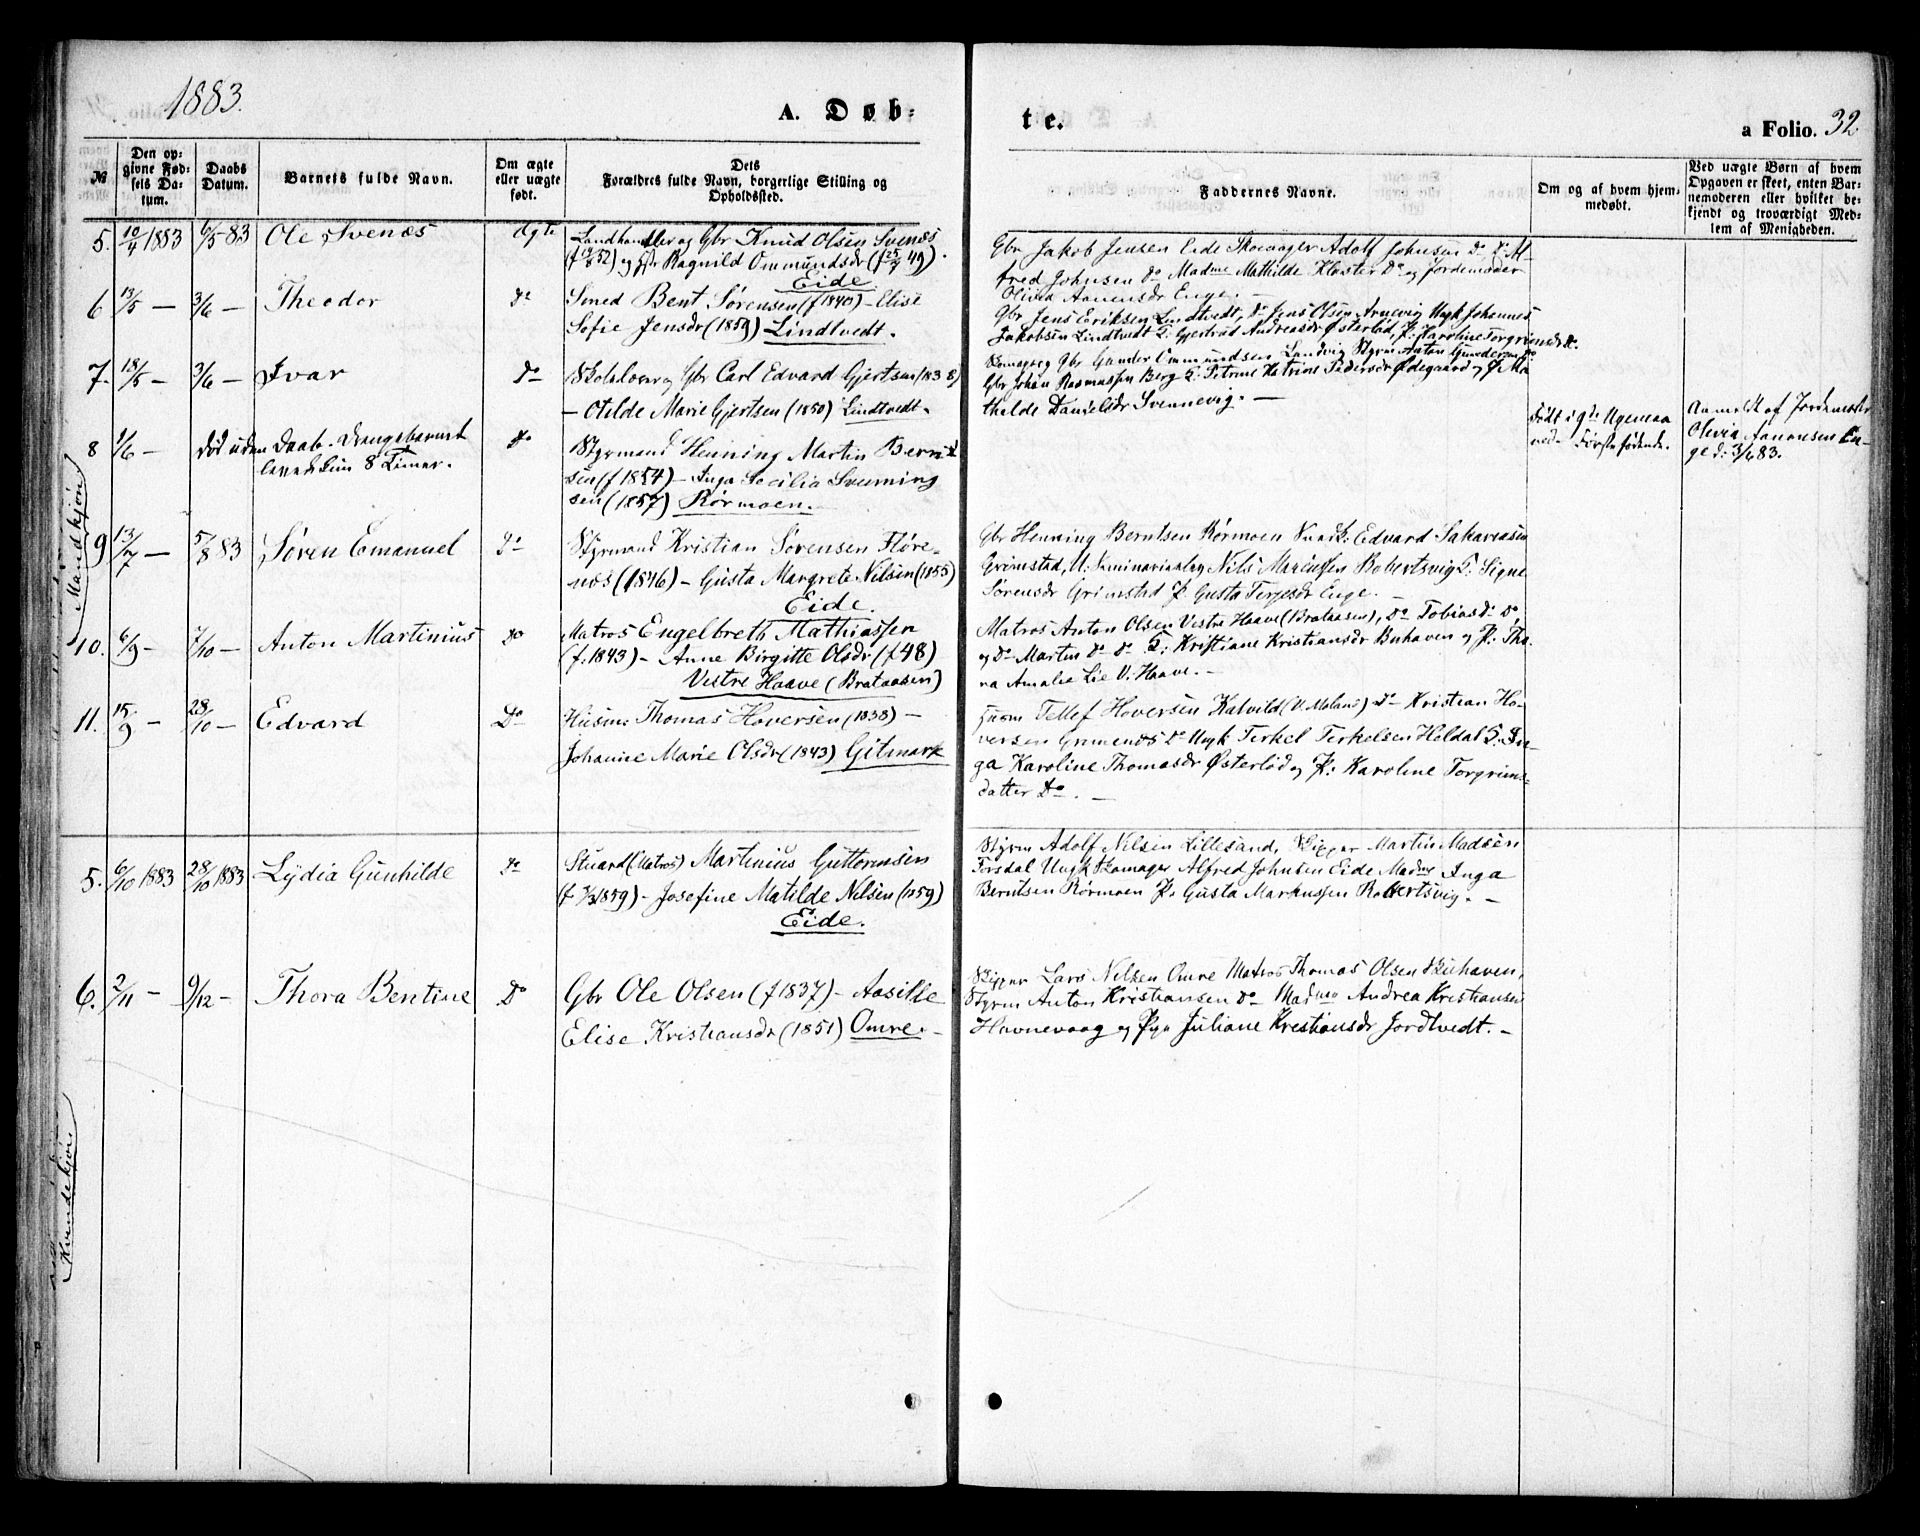 1883.
A. Døb-
te.
a Folio. 32
№
Den opgivne Fødsels Datum.
Daabs Datum.
Barnets fulde Navn.
Om ægte eller uægte født.
Dets Forældres fulde Navn, borgerlige Stilling og Opholdssted.
Faddernes Navne.
Om og af hvem hjemmedøbt.
Ved uægte Børn af hvem Opgaven er skeet, enten Barnemoderen eller hvilket bekjendt og troværdigt Medlem af Menigheden.
Mandkjøn
5. 10/4 1883 6/5 83 Ole Svenæs ægte
Landhandler og Gbr Knud Olsen Svenæs
og Hstr Ragnild Ommundsdr
Eide
Gbr Jakob Jensen Eide Skomager Adolf Johnsen Do
fred Johnsen Do Madme Mathilde Kloster Do og Jordemoder
Olivia Aanensdr Enge. —
6 13/5 — 3/6 — Theodor Do
Smed Bent Sørensen (f 1840) — Elise
Sofie Jensdr (1859) Lindtvedt.
Gbr Jens Eriksen Lindtvedt, Do Jens Olsen Arnevig Ungk Johannes
Jakobsen Lindtvedt Gjertrud Andreasdr Østerlød, P: Karoline Torgrimsdr
7. 18/5 — 3/6 — Ivar Do
Skolelærer og Gbr Carl Edvard Gjertsen (1838)
— Otilde Marie Gjertsen (1850) Lindtvedt.
Gbr Gunder Ommundsen Landvig Styrm Anton Gundersen Do
Gbr Johan Rasmussen Berg Petrine Katrine Pedersdr Ødegaard og P Ma
thilde Danielsdr Svennevig. —
8 1/6 — død uden Daab. Drengebarnet Do
levende kun 8 Timer.
Styrmand Henning Martin Bernt
sen (f 1854) — Inga Secilia Svenning
sen (1857) Rørmoen.
Født i 9de Ugemaa
ned. Førstefødende.
Anmeldt af Jordemoder
Olivia Aanensen En
ge d: 3/6 83.
9 13/7 — 5/8 83 Søren Emanuel Do
Styrmand Kristian Sørensen Fløre-
næs (1846) — Gusta Margrete Nilsen (1855)
Eide.
Gbr Henning Berntsen Rørmoen Edvard Sakariasen
Grimstad, U: Seminarieelev Nils Markussen Robertsvig Signe
Sørensdr Grimstad P Gusta Terjesdr Enge. —
10. 6/9 — 7/10 — Anton Martinius Do
Matros Engelbreth Mathiassen
(f. 1843) — Anne Birgitte Olsdr (f 48)
Vestre Haave (Brataasen)
Matros Anton Olsen Vestre Haave (Brataasen), Do Tobias Do Do
og Do Martin Do Do Kristiane Kristiansdr Buhaven og P: Tho
ra Amalie Lie V. Haave. —
11. 15/9 — 28/10 — Edvard Do
Husm: Thomas Hoversen (1838) —
Johanne Marie Olsdr (1843) Gitmark
Husm Tellef Hoversen Kalvild (V. Moland) Do Kristian Ho-
versen Grimenes Do Ungk Terkel Terkelsen Heldal In-
ga Karoline Thomasdr Østerlød og P: Karoline Torgrims-
datter Do. —
Kvindekjøn
5. 6/10 1883 28/10 1883 Lydia Gunhilde Do
Stuard (Matros) Martinius Guttormsen
— Josefine Matilde Nilsen (1859)
Eide.
Styrm Adolf Nilsen Lillesand, Skipper Martin Madsen
Torsdal Ungk Skomager Alfred Johnsen Eide Madme Inga
Berntsen Rørmoen P: Gusta Markussen Robertsvig. —
6. 2/11 — 9/12 — Thora Bentine Do
Gbr Ole Olsen (f 1837) — Aasille
Elise Kristiansdr (1851) Omre. —
Skipper Lars Nilsen Omre Matros Thomas Olsen Buhaven,
Styrm Anton Kristiansen Do Madme Andrea Kristiansen
Havnevaag og Pige Juliane Kristiansdr Jordtvedt. —